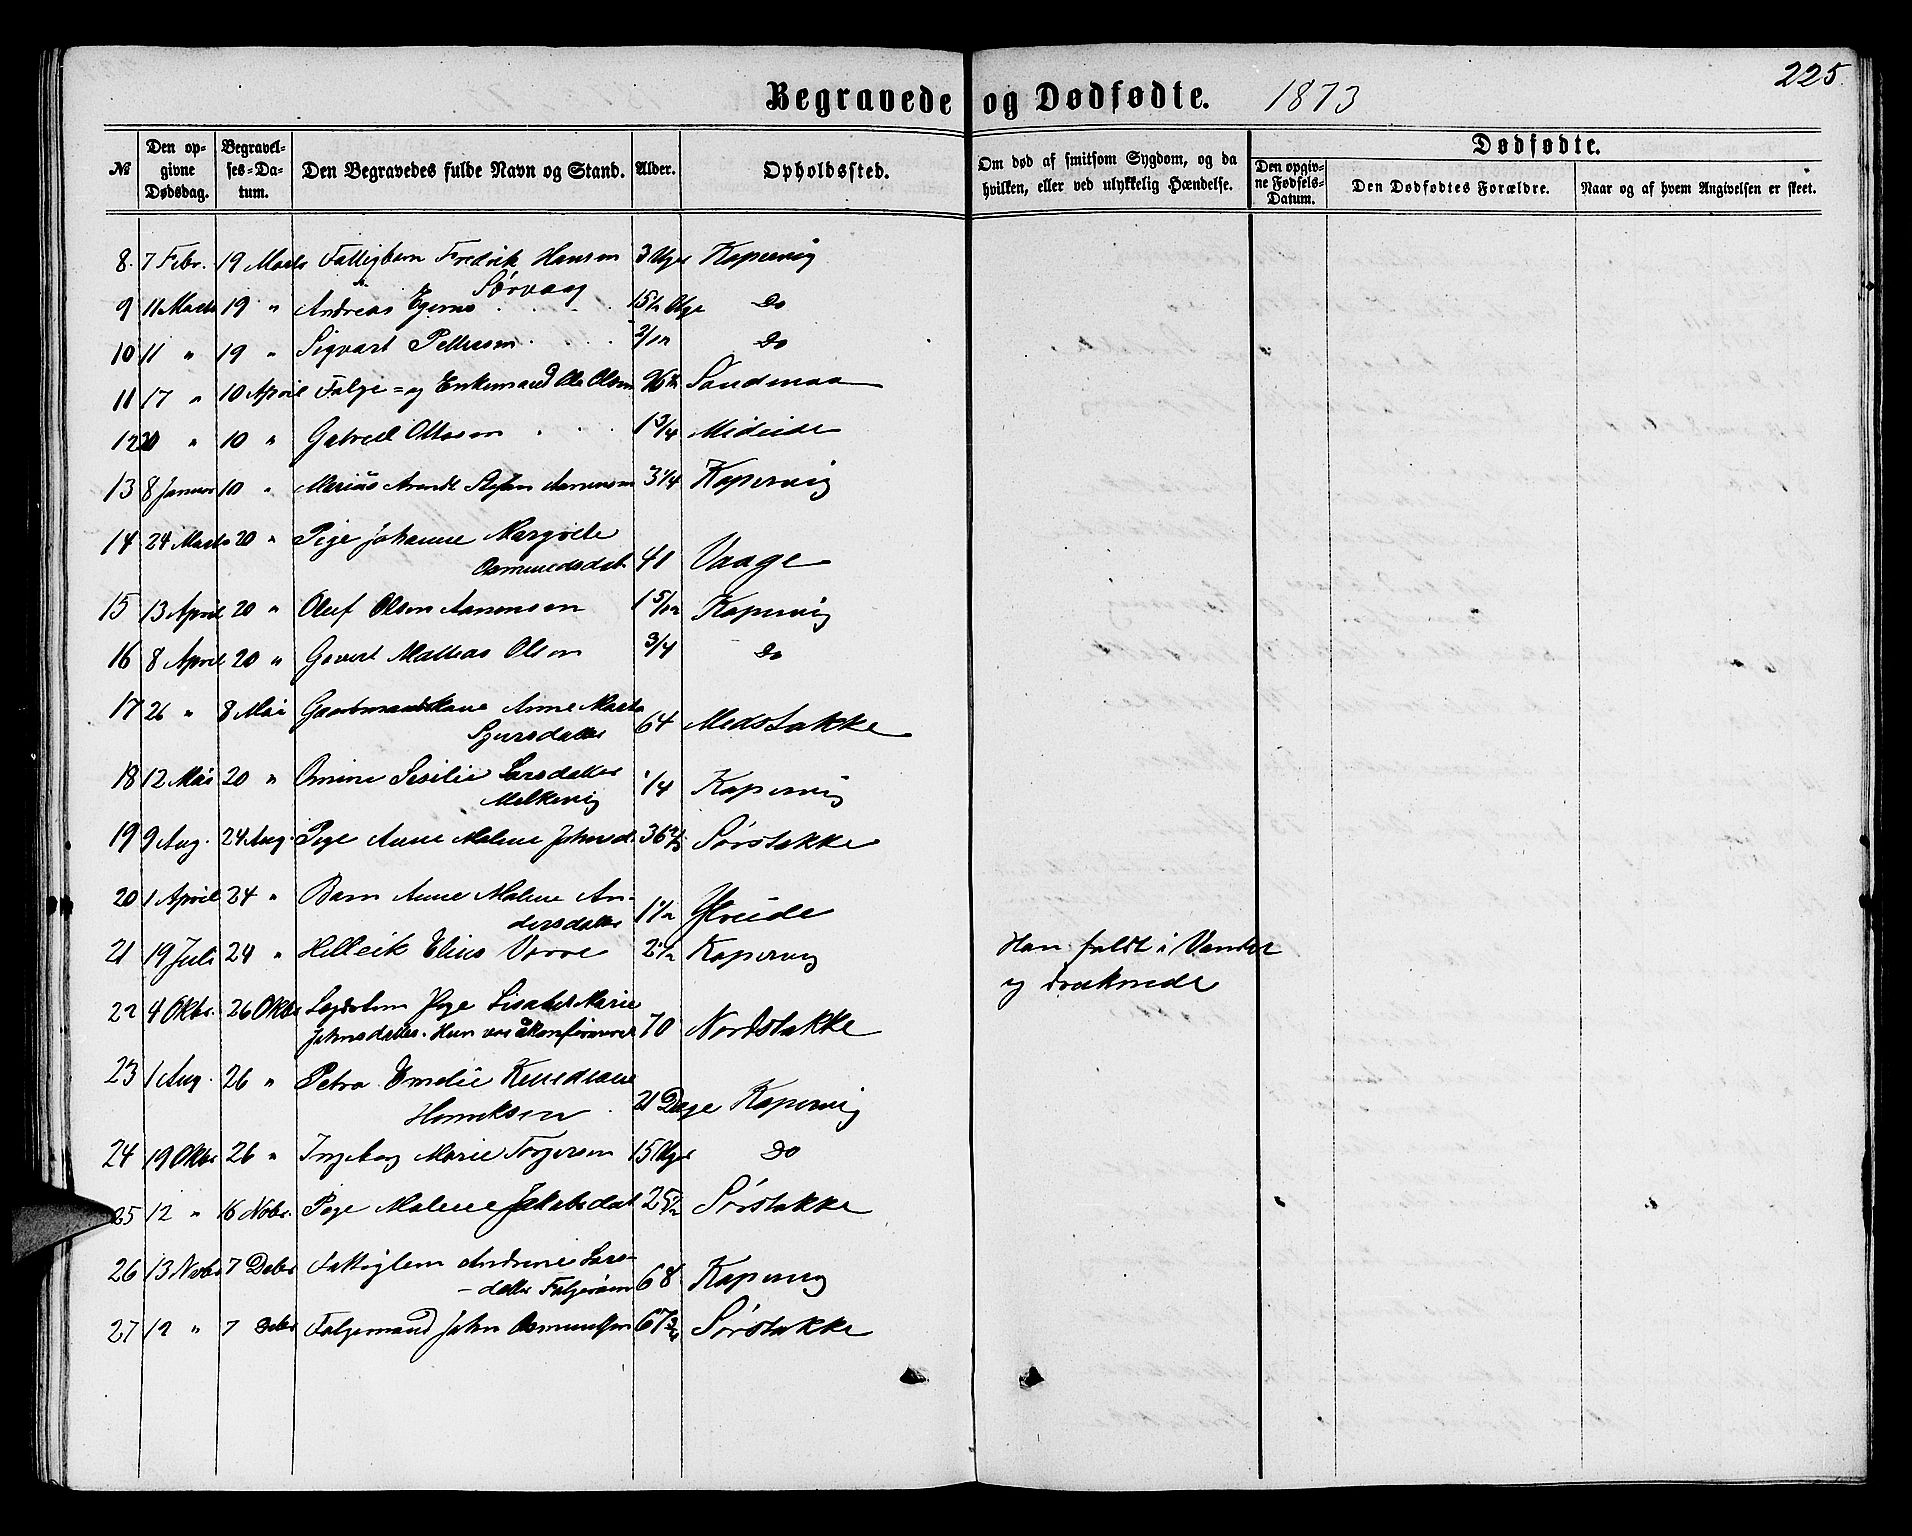 225.
Begravede og Dødfødte. 1873
№ Den opgivne Dødsdag. Begravelses-Datum. Den Begravedes fulde Navn og Stand. Alder. Opholdssted. Om død af smitsom Sygdom, og da hvilken, eller ved ulykkelig Hændelse. Dødfødte. Den opgivne Fødsels-Datum. Den Dødfødtes Forældre. Naar og af hvem Angivelsen er skeet.
8. 7 Febr. 19 Marts Fattigbarn Fredrik Hansen 3 Uger Kopervig
Sørvaag
9 11 Marts 19 " Andreas 15½ Uge Do
10 11 " 19 " Sigvart Pettersen 2/12 Do
11 17 " 10 April Enkemand Ole Olsen
12 " 10 " Gabriel Ottosen 1 3/4
13 8 Januar 10 " Arnt 3 1/4 Kopervig
14 24 Marts 20 " Pige Johanne Margrete
Osmundsdat. 41 Vaage
15 13 April 20 " Oluf Olsen Aanensen 1 5/12 Kopervig
16 8 April 20 " Govert Mattias Olsen 3/4 Do
17 26 " 8 Mai Gaardmandskone Anne Marta
Sjursdatter 64 Medstokke
18 12 Mai 20 " Sesilie Larsdatter
1/4 Kopervig
19 9 Aug. 24 Aug. Pige Anne Malene Johnsd. Sørstokke
20 1 April 24 " Barn Anne Malene An-
dersdatter 1½
21 19 Juli 24 " Helleik Elias Vorre 2½ Kopervig Han faldt i Vandet
og druknede
22 4 Oktbr. 26 Oktbr Pige Lisabet Marie
Johnsdatter. Hun var ukonfirmeret 70 Nordstokke
23 1 Aug. 26 " Petra Emelie
Henriksen 21 Dage Kopervig
24 19 Oktbr 26 " Ingeborg Marie Torgersen 15 Uger Do
25 12 " 16 Nobr. Pige Malene Jakobsdat 25½ Sørstokke
26 13 Nobr 7 Debr Fattiglem Andrine Lars-
datter 68 Kopervig
27 12 " 7 Debr John Osmundsen Sørstokke